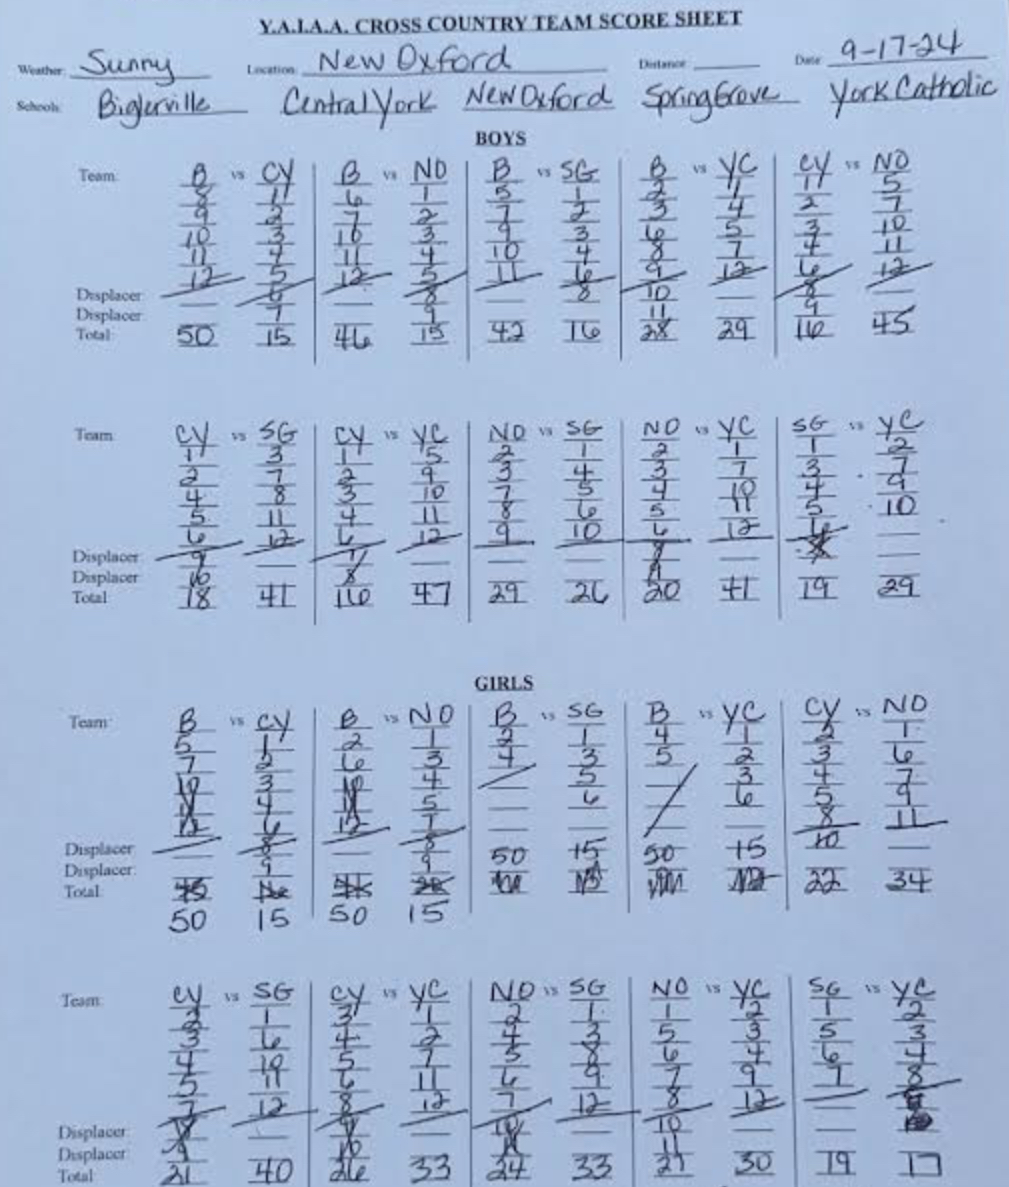 Y.A.I.A.A. CROSS COUNTRY TEAM SCORE SHEET
Weather: Sunny Location: New Oxford Distance: Date: 9-17-24
Schools: Biglerville Central York New Oxford Spring Grove York Catholic
BOYS
Team: B vs CY B vs NO B vs SG B vs YC CY vs NO
8 1 6 1 5 1 2 1 1 5
9 2 7 2 7 2 3 4 2 7
10 3 10 3 9 3 6 5 3 10
11 4 11 4 10 4 8 7 4 11
12 5 12 5 11 6 9 12 6 12
Displacer: 6 8 8 10 8
Displacer: 7 9 11 9
Total: 50 15 46 15 42 16 28 29 16 45
Team: CY vs SG CY vs YC NO vs SG NO vs YC SG vs YC
1 3 1 5 2 1 2 1 1 2
2 7 2 9 3 4 3 7 3 7
4 8 3 10 7 5 4 10 4 9
5 11 4 11 8 6 5 11 5 10
6 12 6 12 9 10 6 12 6
Displacer: 9 7 8 8
Displacer: 10 8 9
Total: 18 41 16 47 29 26 20 41 19 29
GIRLS
Team: B vs CY B vs NO B vs SG B vs YC CY vs NO
5 1 2 1 2 1 4 1 2 1
7 2 6 3 4 3 5 2 3 6
10 3 10 4 5 3 4 7
11 4 11 5 6 6 5 9
12 6 12 7 8 11
Displacer: 8 8 50 15 50 15 10
Displacer: 9 9
Total: 45 16 22 34
50 15 50 15
Team: CY vs SG CY vs YC NO vs SG NO vs YC SG vs YC
2 1 3 1 2 1 1 2 1 2
3 6 4 2 4 3 5 3 5 3
4 10 5 7 5 8 6 4 6 4
5 11 6 11 6 9 7 9 7 8
7 12 8 12 7 12 8 12
Displacer: 8 9 10 10
Displacer: 9 10 11 11
Total: 21 40 26 33 24 33 27 30 19 17